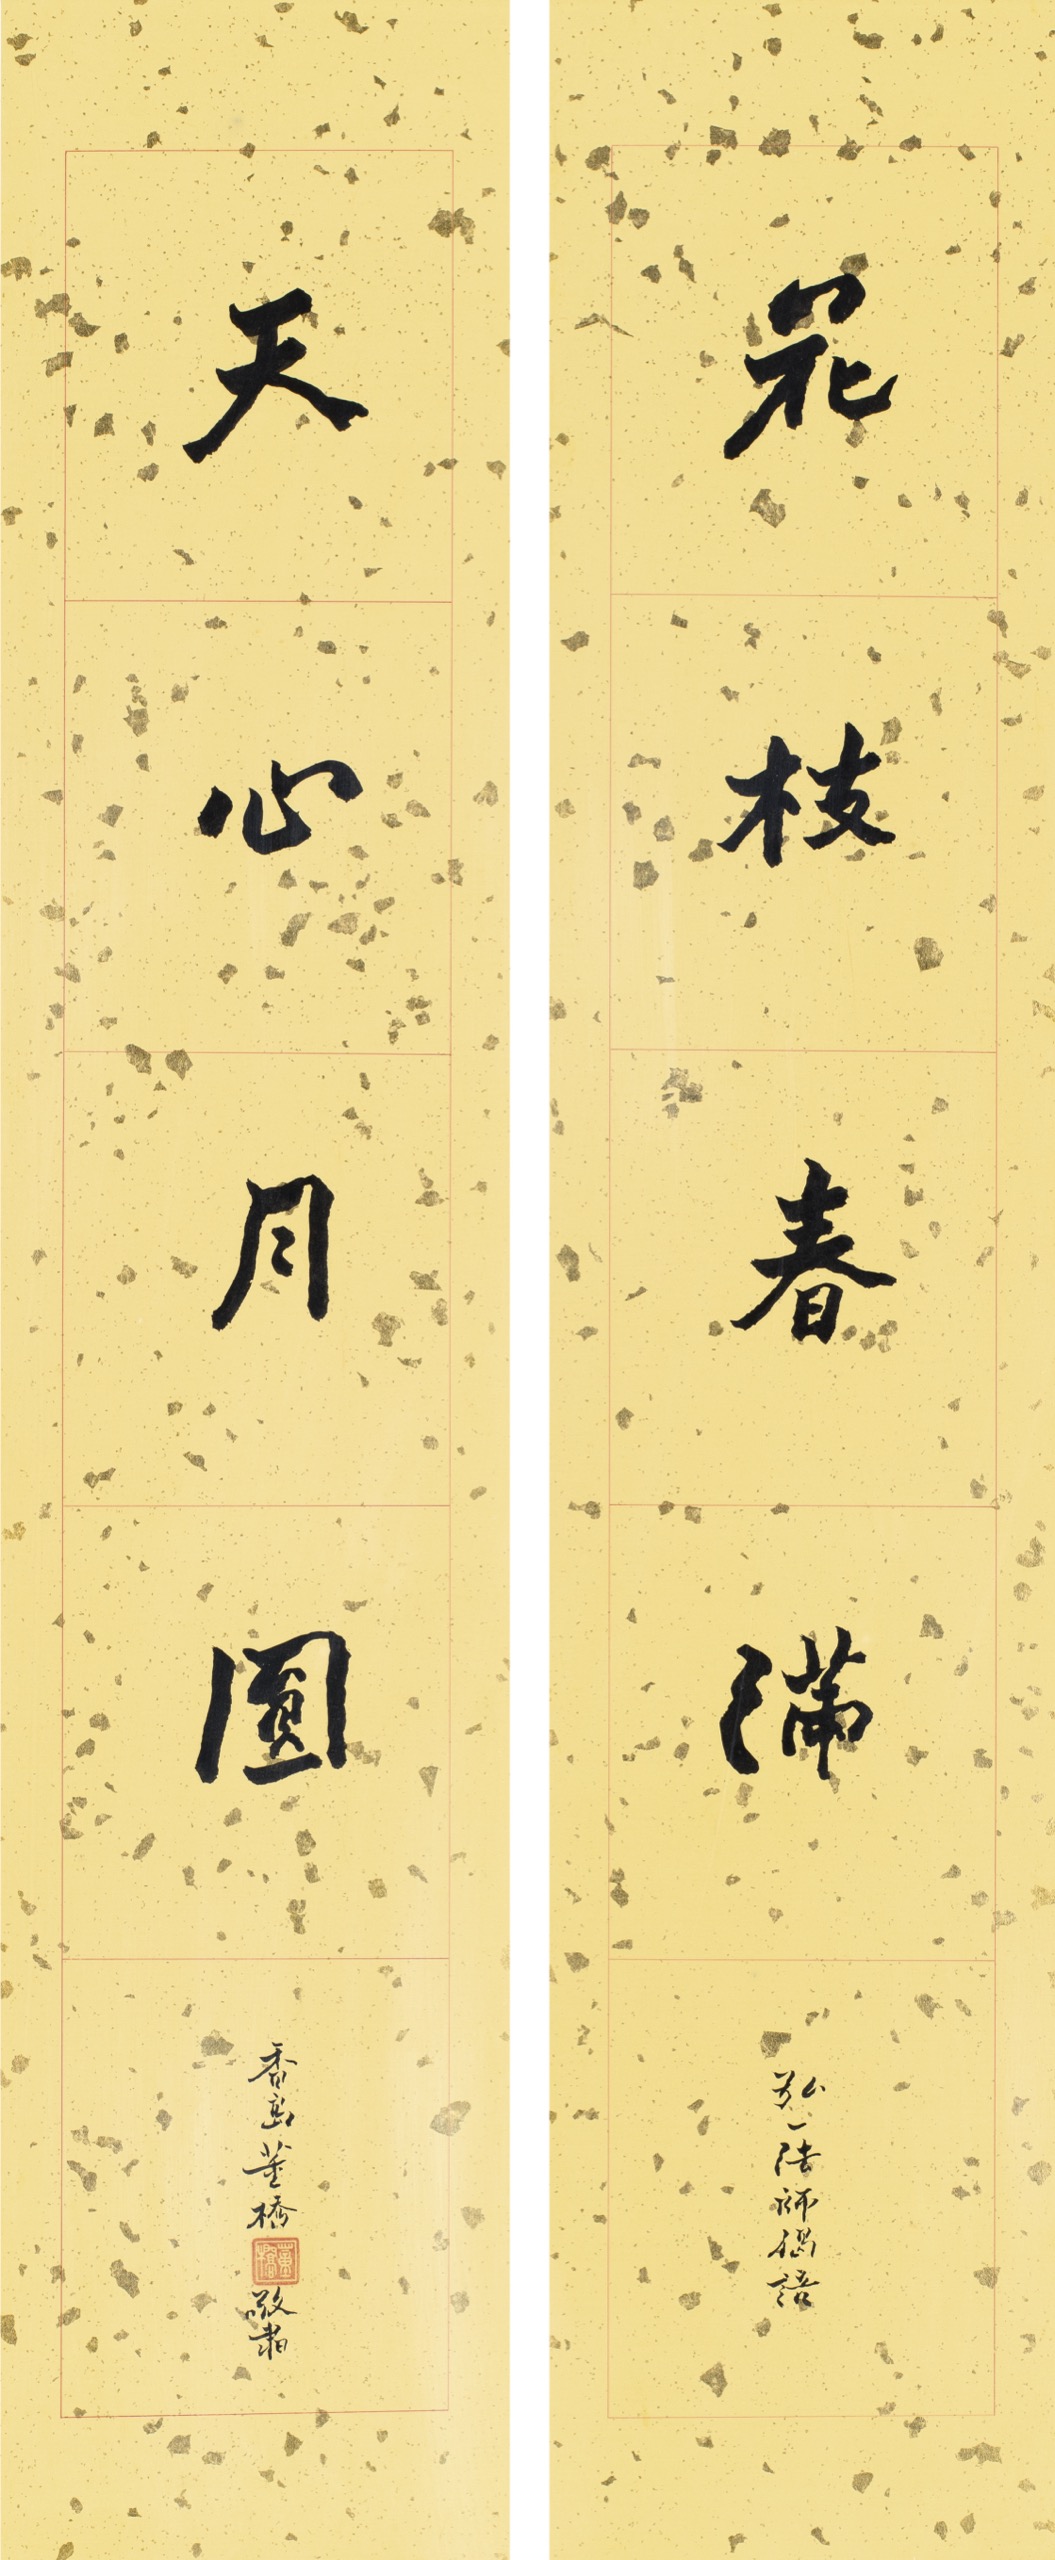 花枝春滿
弘一法師偈語
天心月圓
香島董橋
董橋
敬書